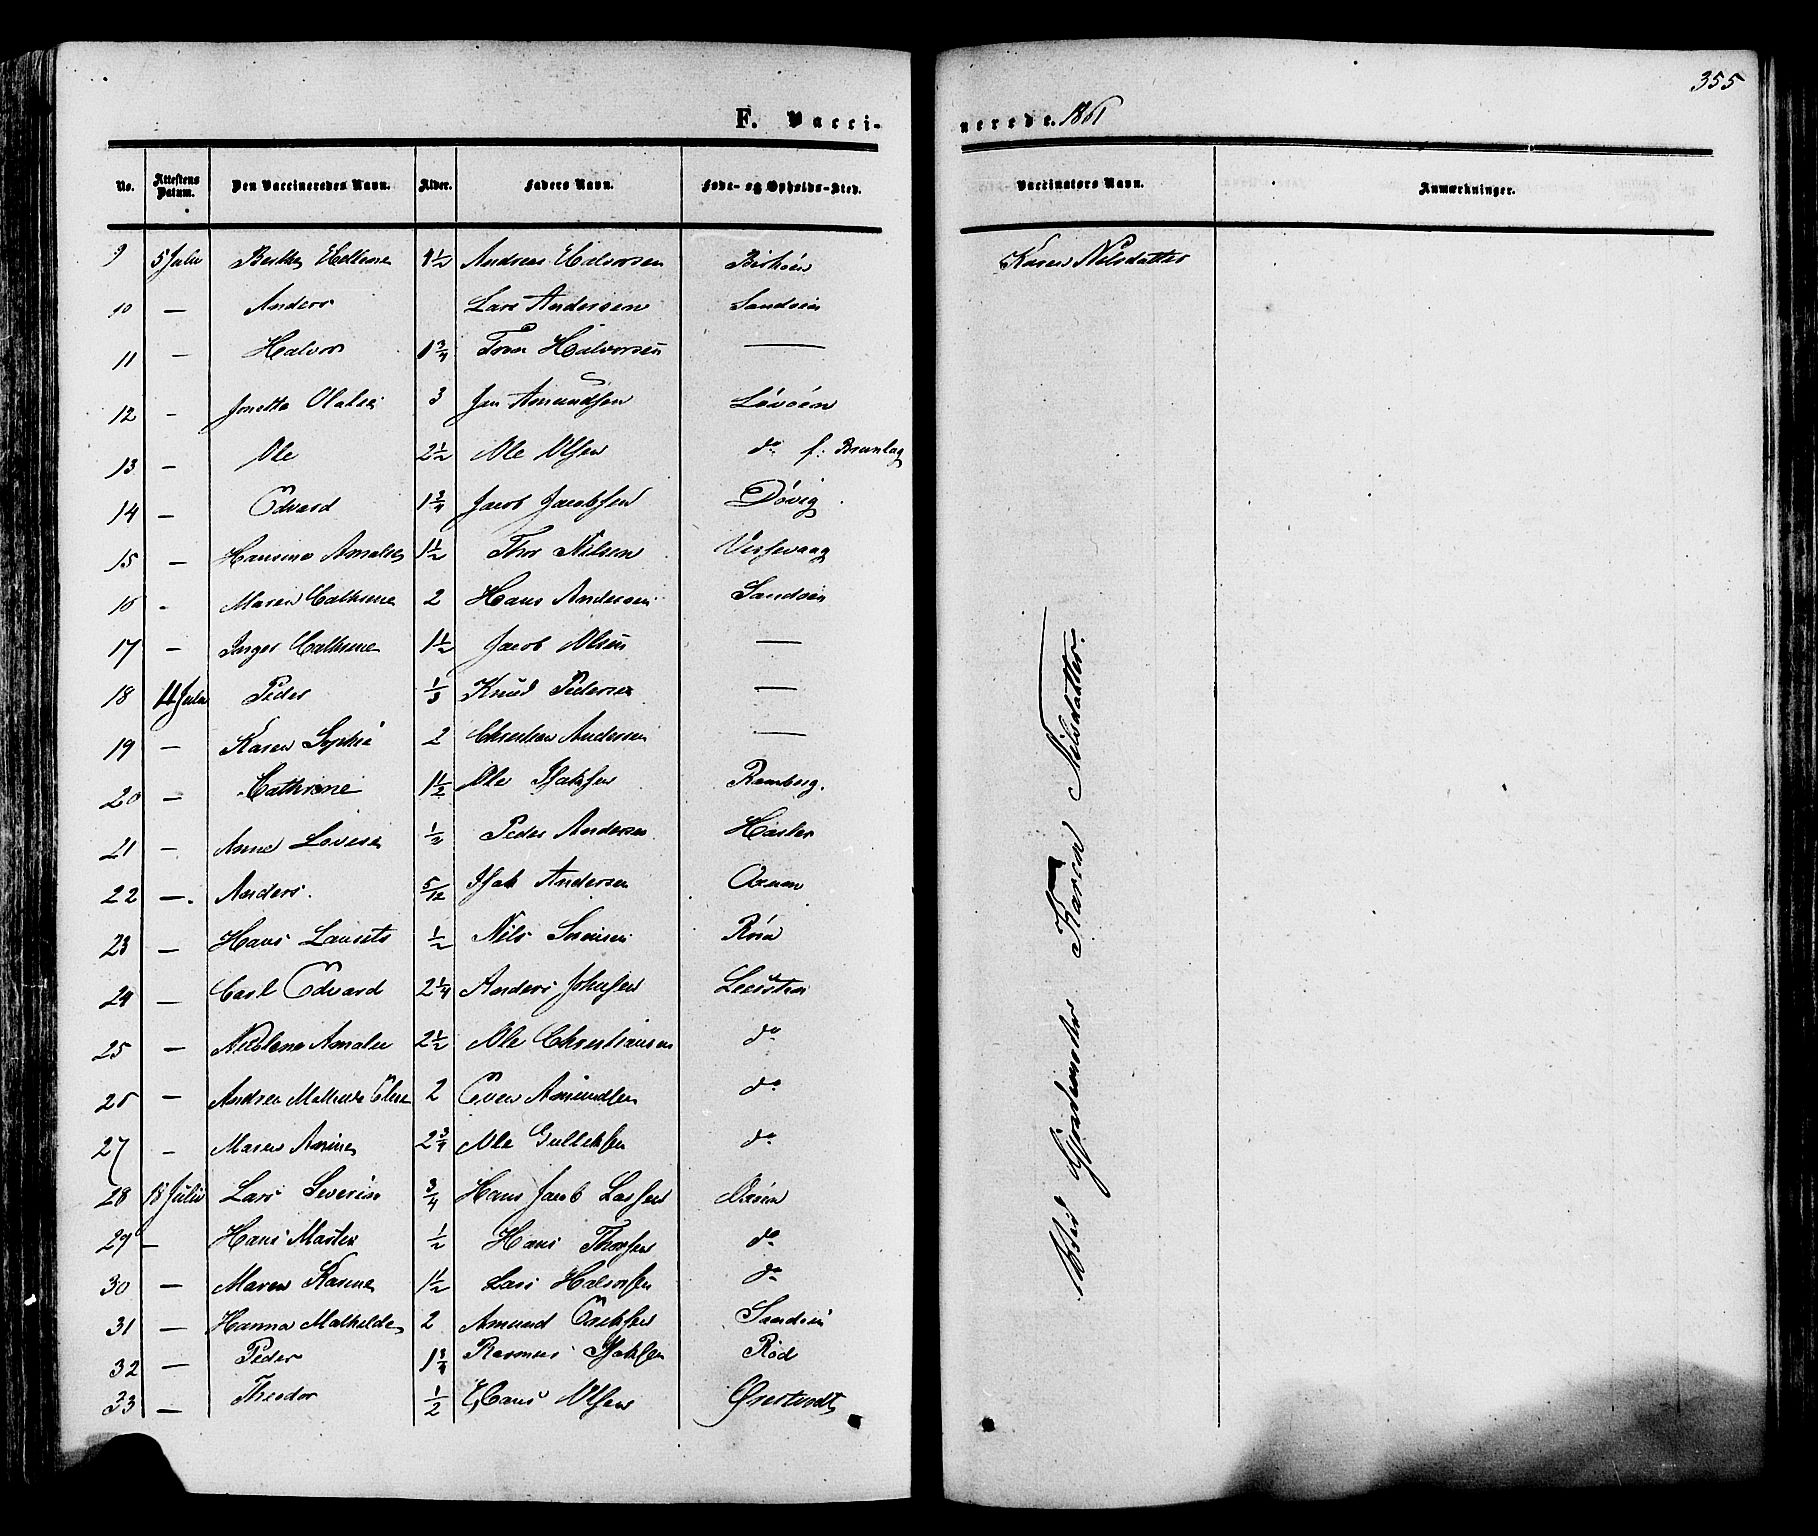 355
F. Vaccinerede. 1861
No. Attestens Datum. Den Vaccineredes Navn. Alder. Faders Navn. Føde- og Opholds-Sted. Vaccinators Navn. Anmærkninger.
9 5 Julii Berthe Hellene 1½ Andreas Halvorsen Karen Nilsdatter
10 — Anders Lars Andersen Sandøen
11 — Halvor 1¾ Thor Halvorsen —
12 - Jonette 3 Jen Amundsen Løvøen
13 — Ole 2½ Ole Olsen do f: Brunlag
14 — Edvard 1¾ Jacob Jacobsen Døvig
15 — Hansine Amalie 1½ Thor Nilsen Vessevaag
16 - Maren Cathrine 2 Hans Andersen Sandøen
17 - Inger Cathrine 1½ Jacob Olsen —
18 11 Julii Peder Knud Pedersen —
19 — Karen Sophie 2 Christen Andersen —
20 — Cathrine 1½ Ole Isaksen Ramberg.
21 — Anne Lovise ½ Peder Andersen
22 — Anders. 5/12 Isak Andersen
23 — Hans Laurets ½ Nils Sørensen Røsa
24 — Carl Edvard 2¼ Anders Johnsen
25 — Nicoline Amalie 2½ Ole Christiansen do
26 — Andrea Mathilde Eline 2 Even Amundsen do
27 - Maren Anine 2¾ Ole Gulleksen do
28 18 Julii Lars Severin ¾ Hans Jacob Larsen
29 — Hans Martin ½ Hans Thorsen do
30 — Maren Karine 1½ Lars Halvorsen do
31 — Hanna Mathilde 2 Amund Eriksen Sandøen
32 — Peder 1¾ Rasmus Isaksen Rød
33 — Theodor ½ Hans Olsen Grestvedt
Ved Gjordemoder Karen Nilsdatter.